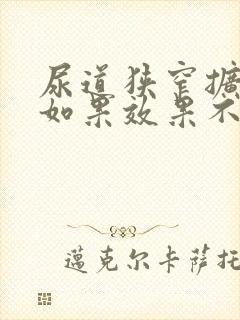 尿道狭窄擴
如果效果不
邁克尔卡萨托